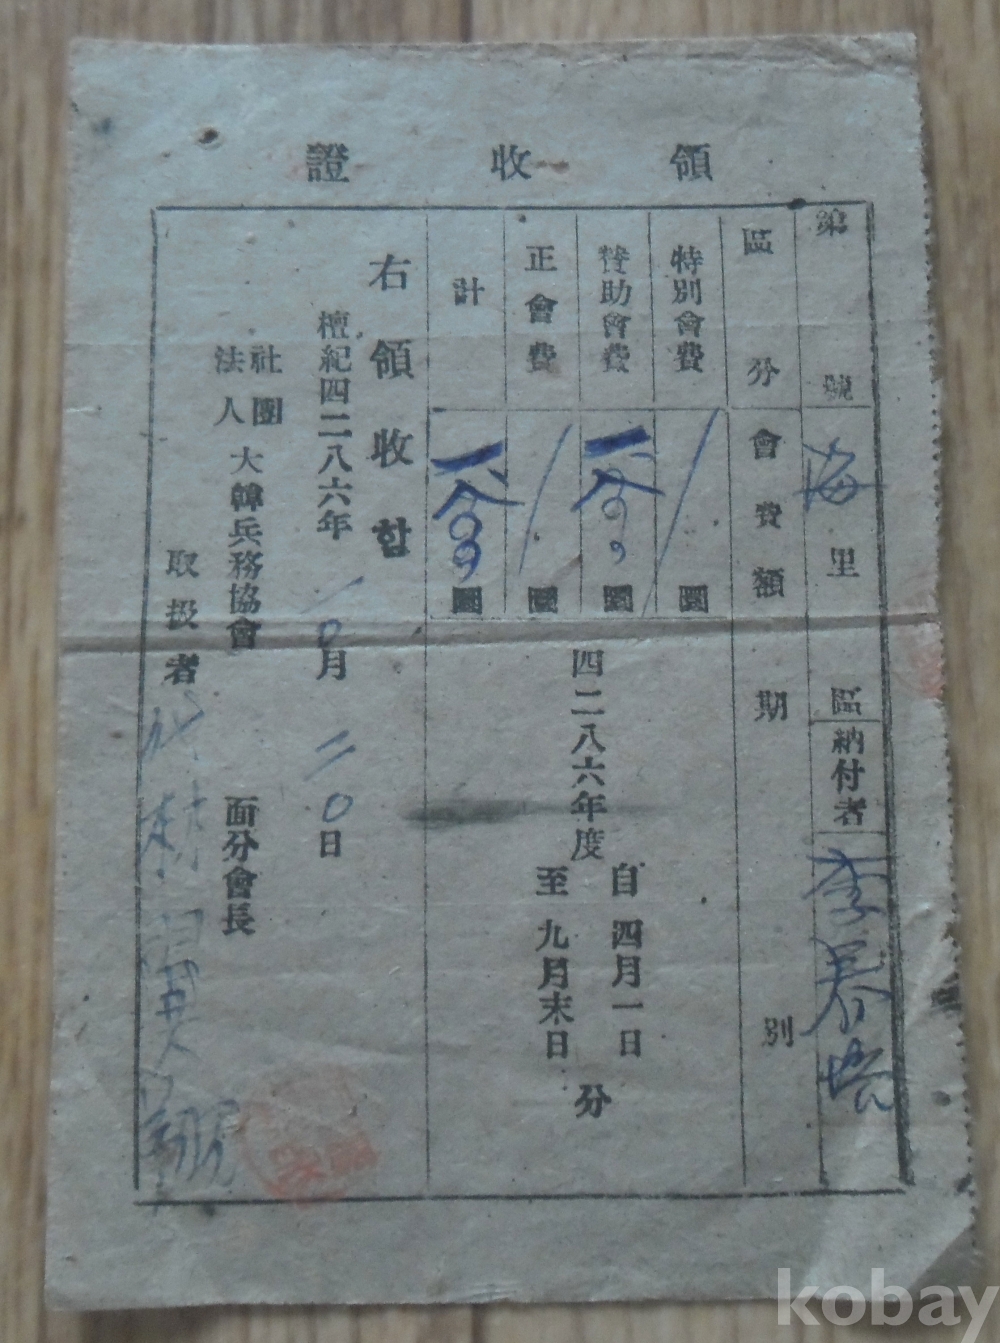 領收證
第 號 海 里 區 納付者 李春
區分 會費額 期別
特別會費 圜
贊助會費 一八〇〇 圜
正會費 圜
計 一八〇〇 圜
四二八六年度 自四月一日
至九月末日 分
右領收함
檀紀四二八六年 一〇月 二〇日
社團
法人 大韓兵務協會 面分會長
取扱者
kobay